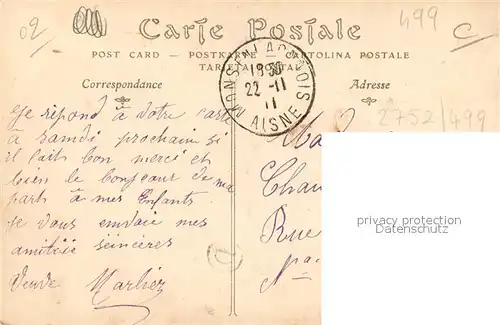 02
499
C
Carte Postale
POST CARD — POSTKARTE — CARTOLINA POSTALE
TARJETA POSTAL
Correspondance
Adresse
MONS-EN-LAONNOIS
18 30
22 - 11
11
AISNE
2752/499
Je répond à votre carte
à Samdi prochain si
il fait bon merci et
bien le bonjour de ma
part à mes Enfants
je vous envoie mes
amitiée seincères
Veuve Marliez
Ma
Chau
Rue
privacy protection
www.oldthing.de